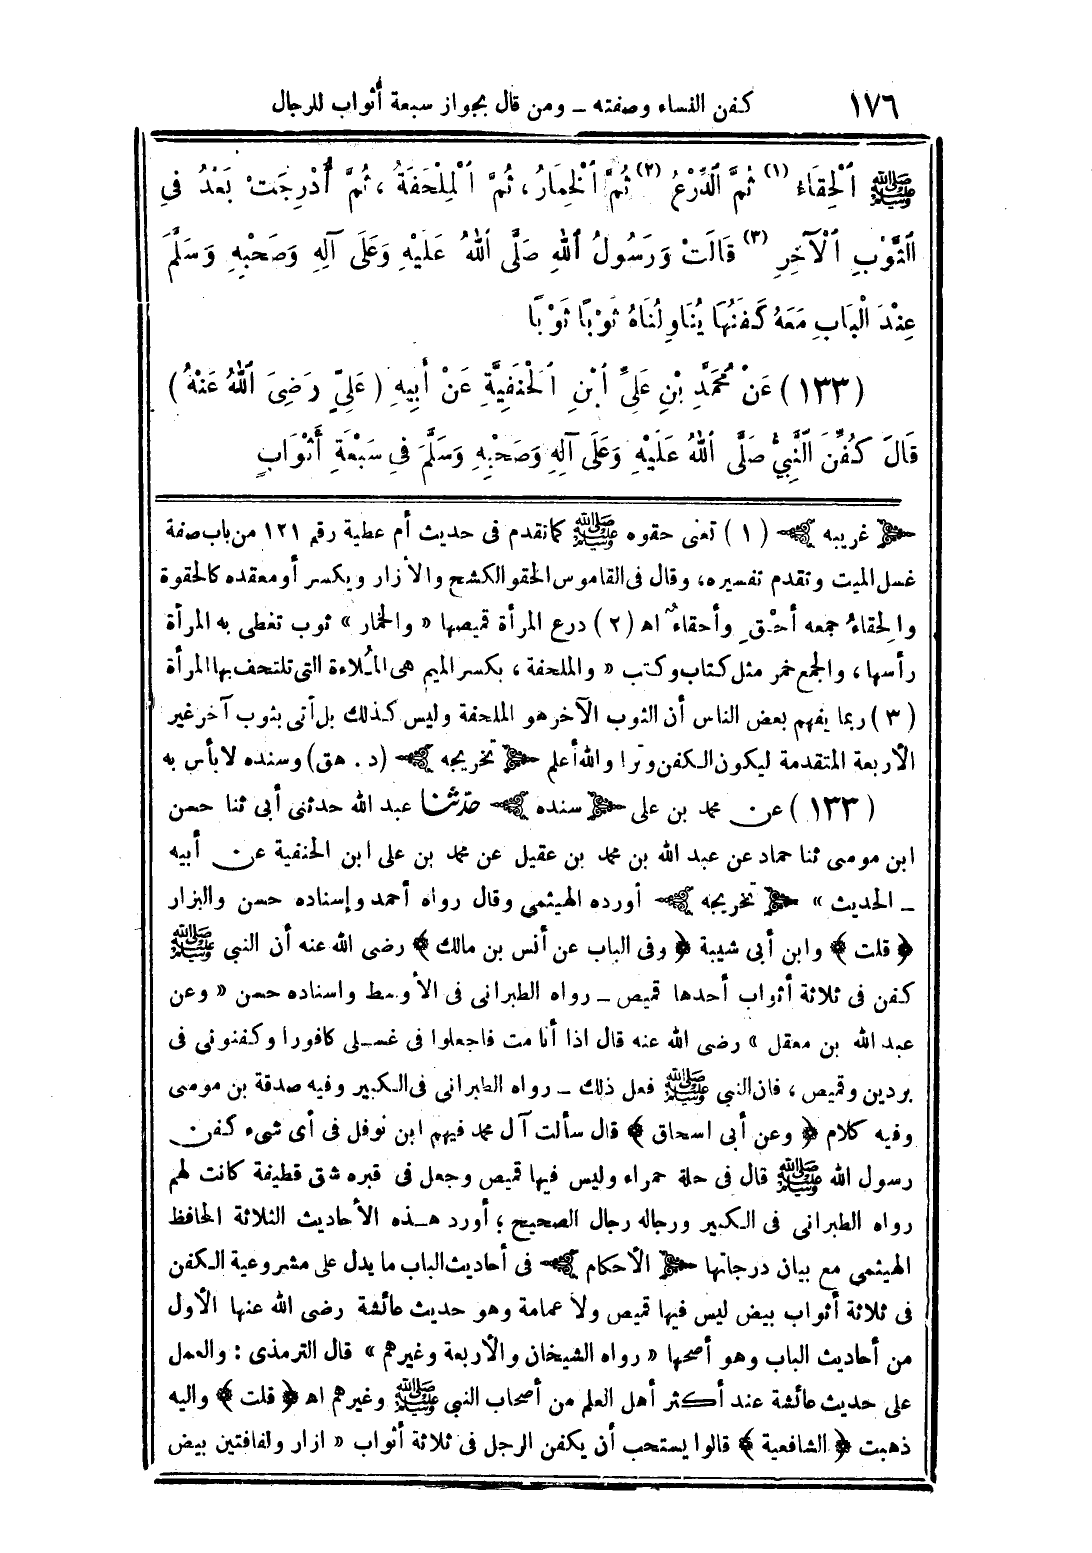 ١٧٦ كفن النساء وصفته ــ ومن قال بجواز سبعة أثواب للرجال
ﷺ ٱلْحِقَاءَ (١) ثُمَّ ٱلدِّرْعُ (٢) ثُمَّ ٱلْخِمَارُ، ثُمَّ ٱلْمِلْحَفَةُ، ثُمَّ أُدْرِجَتْ بَعْدُ فِى
ٱلثَّوْبِ ٱلْآخِرِ (٣) قَالَتْ وَرَسُولُ ٱللهِ صَلَّى ٱللهُ عَلَيْهِ وَعَلَى آلِهِ وَصَحْبِهِ وَسَلَّمَ
عِنْدَ الْبَابِ مَعَهُ كَفَنُهَا يُنَاوِلُنَاهُ ثَوْبًا ثَوْبًا
(١٣٣) عَنْ مُحَمَّدِ بْنِ عَلِىِّ ٱبْنِ ٱلْحَنَفِيَّةِ عَنْ أَبِيهِ (عَلِىٍّ رَضِىَ ٱللهُ عَنْهُ)
قَالَ كُفِّنَ ٱلنَّبِىُّ صَلَّى ٱللهُ عَلَيْهِ وَعَلَى آلِهِ وَصَحْبِهِ وَسَلَّمَ فِى سَبْعَةِ أَثْوَابٍ
﴿ غريبه ﴾ (١) تعنى حقوه ﷺ كما تقدم فى حديث أم عطية رقم ١٢١ من باب صفة
غسل الميت وتقدم تفسيره، وقال فى القاموس الحقو الكشح والأزار ويكسر أو معقده كالحقوة
والحقاءُ جمعه أحْقٍ وأحقاءٌ اه (٢) درع المرأة قميصها « والخمار » ثوب تغطى به المرأة
رأسها، والجمع خمر مثل كتاب وكتب « والملحفة، بكسر الميم هى المُلاءة التى تلتحف بها المرأة
(٣) ربما يفهم بعض الناس أن الثوب الآخر هو الملحفة وليس كذلك بل أتى بثوب آخر غير
الأربعة المتقدمة ليكون الكفن وترا والله أعلم ﴿ تخريجه ﴾ (د. هق) وسنده لا بأس به
(١٣٣) عن محمد بن على ﴿ سنده ﴾ حدثنا عبد الله حدثنى أبى ثنا حسن
ابن موسى ثنا حماد عن عبد الله بن محمد بن عقيل عن محمد بن على ابن الحنفية عن أبيه
ــ الحديث » ﴿ تخريجه ﴾ أورده الهيثمى وقال رواه أحمد وإسناده حسن والبزار
﴿ قلت ﴾ وابن أبى شيبة ﴿ وفى الباب عن أنس بن مالك ﴾ رضى الله عنه أن النبى ﷺ
كفن فى ثلاثة أثواب أحدها قميص ــ رواه الطبرانى فى الأوسط واسناده حسن « وعن
عبد الله بن معقل » رضى الله عنه قال اذا أنا مت فاجعلوا فى غسلى كافورا وكفنونى فى
بردين وقميص، فان النبى ﷺ فعل ذلك ــ رواه الطبرانى فى الكبير وفيه صدقة بن موسى
وفيه كلام ﴿ وعن أبى اسحاق ﴾ قال سألت آل محمد فيهم ابن نوفل فى أى شىء كفن
رسول الله ﷺ قال فى حلة حمراء وليس فيها قميص وجعل فى قبره شق قطيفة كانت لهم
رواه الطبرانى فى الكبير ورجاله رجال الصحيح؛ أورد هذه الأحاديث الثلاثة الحافظ
الهيثمى مع بيان درجاتها ﴿ الأحكام ﴾ فى أحاديث الباب ما يدل على مشروعية الكفن
فى ثلاثة أثواب بيض ليس فيها قميص ولا عمامة وهو حديث عائشة رضى الله عنها الأول
من أحاديث الباب وهو أصحها « رواه الشيخان والأربعة وغيرهم » قال الترمذى : والعمل
على حديث عائشة عند أكثر أهل العلم من أصحاب النبى ﷺ وغيرهم اه ﴿ قلت ﴾ واليه
ذهبت ﴿ الشافعية ﴾ قالوا يستحب أن يكفن الرجل فى ثلاثة أثواب « ازار ولفافتين بيض